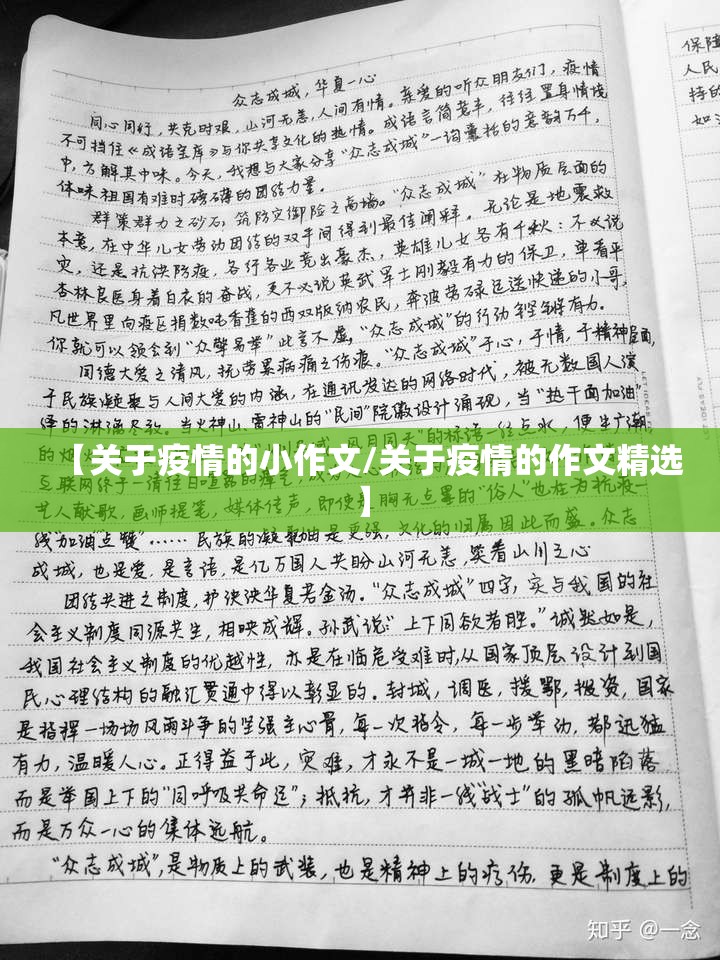 众志成城，华夏一心
同心同行，共克时艰，山河无恙，人间有情。亲爱的听众朋友们，疫情
不可挡住《成语宝库》与你共享文化的热情。成语言简意丰，往往置身情境
中，方解其中味。今天，我想与大家分享“众志成城”一词囊括的意韵万千，
体味祖国有难时磅礴的团结力量。
群策群力之砂石，筑防灾御险之高墙。“众志成城”在物质层面的
本意，在中华儿女劳动团结的双手间得到最佳阐释。无论是地震救
灾，还是抗洪防疫，各行各业竞出豪杰，英雄儿女各有千秋：不必说
杏林良医身着白衣的奋战，更不必说英武军士刚毅有力的保卫，单看平
凡世界里向疫区捐数吨香蕉的西双版纳农民，奔波劳碌运送快递的小哥，
你就可以领会到“众擎易举”此言不虚，“众志成城”的行动铿锵有力。
同德大爱之清风，抚劳累病痛之伤痕。“众志成城”于心，于情，于精神层面，
于民族凝聚与人间大爱的内涵，在通讯发达的网络时代，被无数国人演
绎的淋漓尽致。当火神山、雷神山的“民间”院徽设计涌现，当“热干面加油”
的烟火 风月同天”的标语一经点水，便生广潮
【关于疫情的小作文/关于疫情的作文精选
】
互联网终于一清往日喧嚣的
艺人献歌，画师提笔，媒体传声，即使是胸无点墨的“俗人”也在为抗疫一
线“加油点赞”……民族的凝聚油是更强，文化的归属因此而盛。众志
成城，也是爱，是言语，是亿万国人共盼山河无恙，笑看山川之心
团结共进之制度，护泱泱华夏若金汤。“众志成城”四字，实与我国的社
会主义制度同源共生，相映成辉。孙武说：“上下同欲者胜。”诚然如是，
我国社会主义制度的优越性，亦是在临危受难时，从国家顶层设计到国
民心理结构的融汇贯通中得以彰显的。封城，调医，援鄂，拨资，国家
是指挥一场场风雨斗争的坚强主心骨，每一次指令，每一步举动，都迅猛
有力，温暖人心。正得益于此，灾难，才永不是一城一地的黑暗陷落
而是举国上下的“同呼吸共命运”；抵抗，才并非一线“战士”的孤帆远影，
而是万众一心的集体远航。
“众志成城”，是物质上的武装，也是精神上的疗伤，更是制度上的
保障
人民
持的
如
知乎 @一念